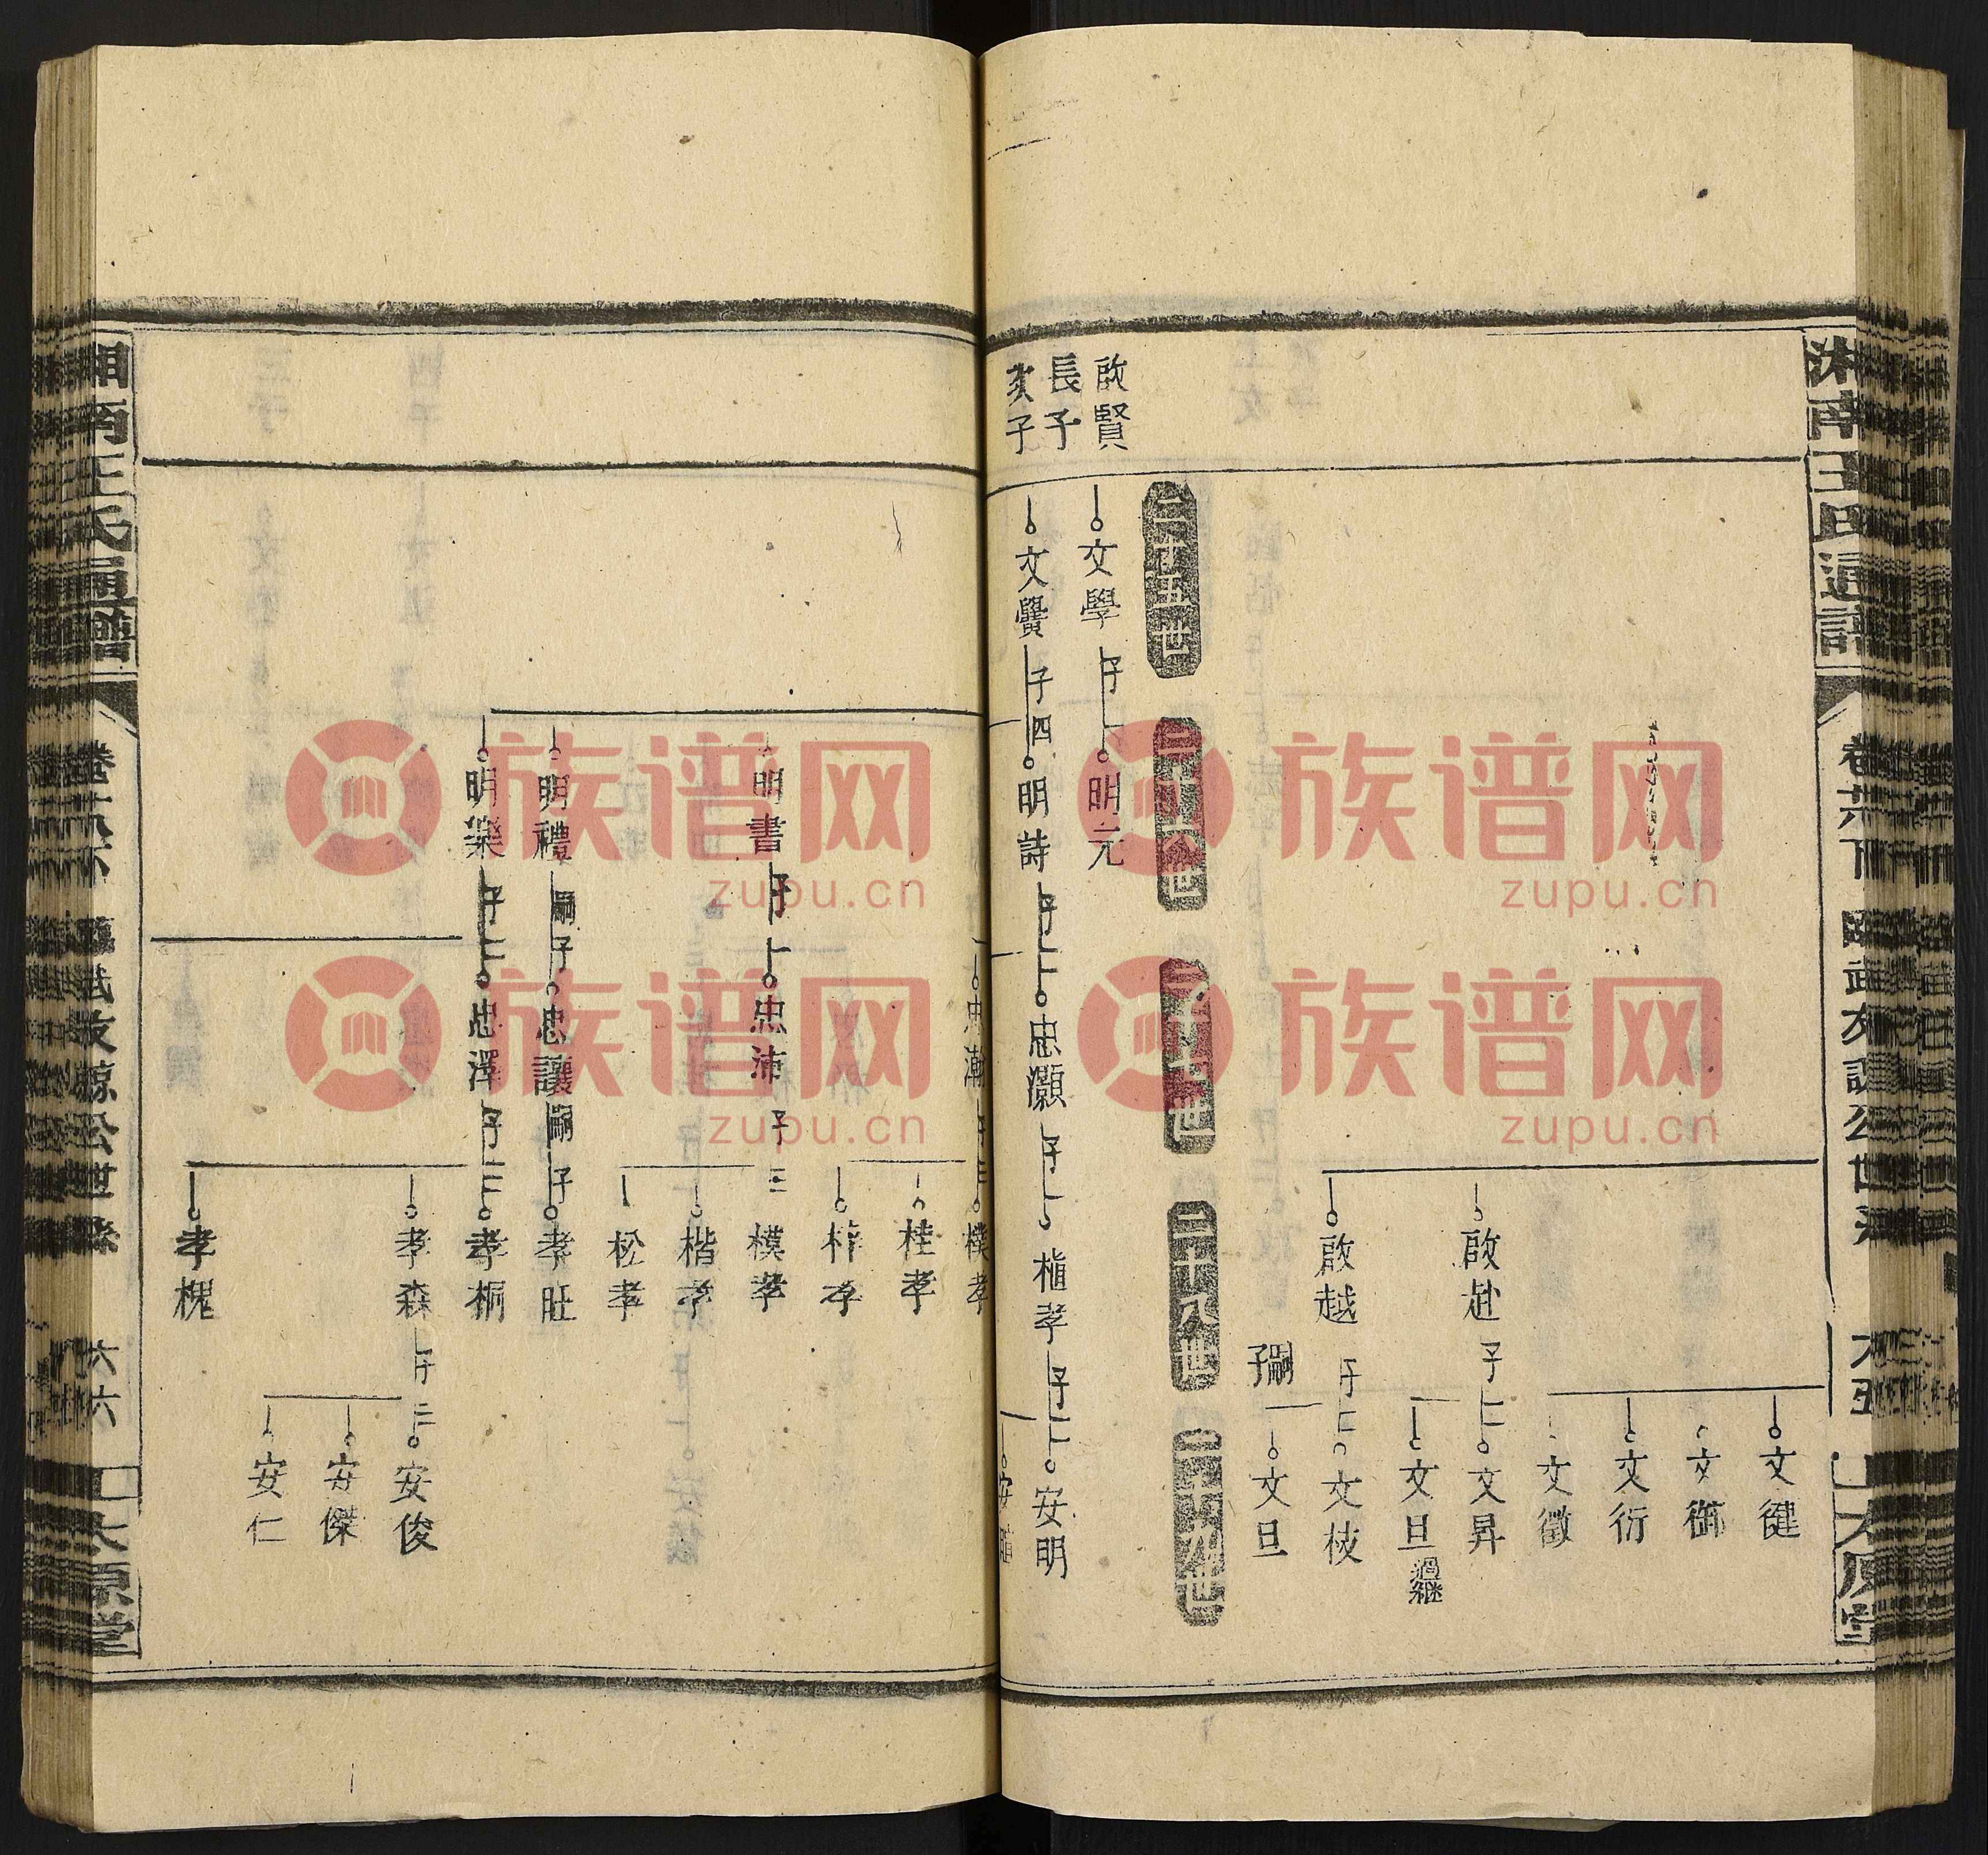 文健
文御
文衍
文徵
啟赴 子二 文昇
文旦 過継
啟越 子一 文枝
嗣子 文旦
二十五世
二十六世
二十七世
二十八世
二十九世
啟賢
長子
次子
文學 子一 明元
文黌 子四 明詩 子二 忠灝 子一 植孝 子二 安明
忠瀚 子三 樸孝
桂孝
梓孝
明書 子一 忠沛 子三 模孝
楷孝
松孝
明禮 嗣子 忠讓 嗣子 孝旺
明樂 子一 忠澤 子三 孝桐
孝森 子三 安俊
安傑
安仁
孝槐
湘南王氏通譜
六五
太原堂
湘南王氏通譜
六六
太原堂
族谱网
zupu.cn
族谱网
zupu.cn
族谱网
zupu.cn
族谱网
zupu.cn